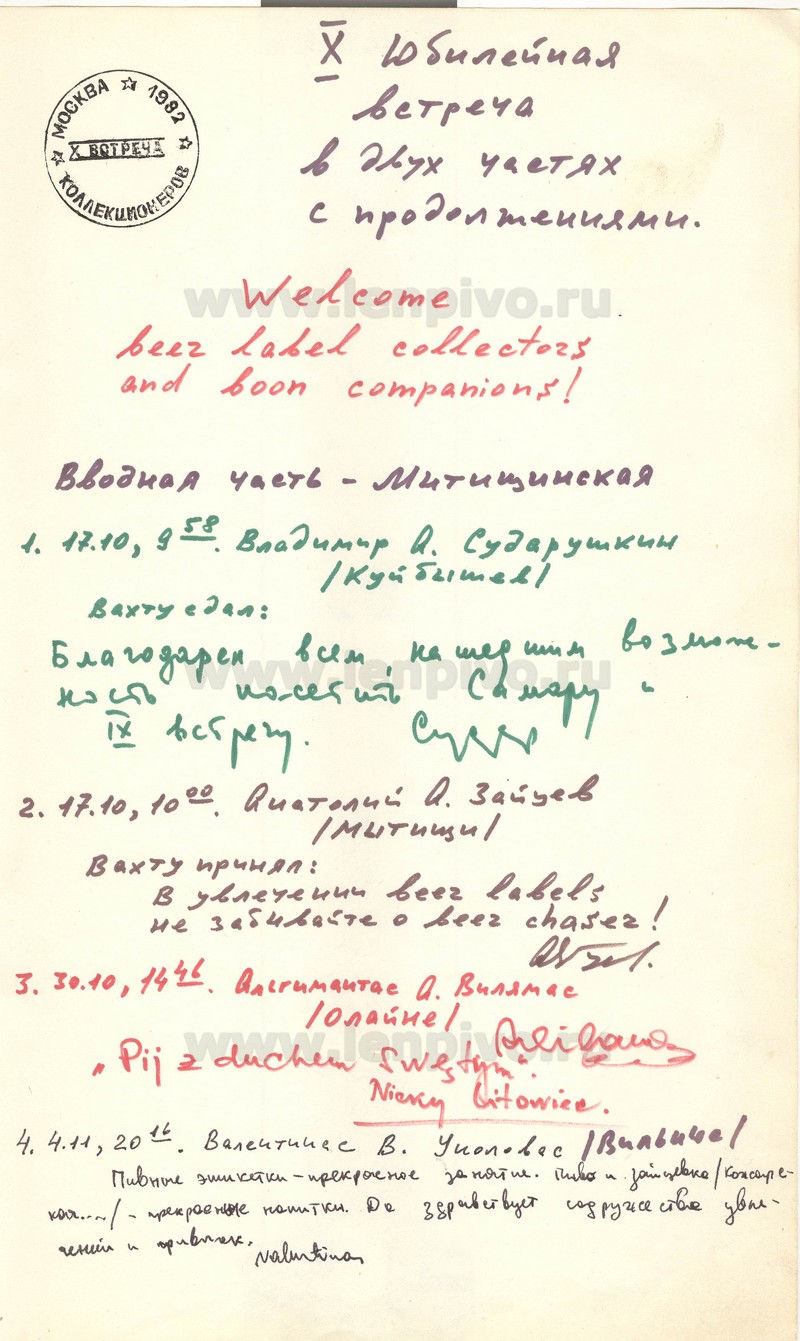 МОСКВА ☆ 1982 ☆
X ВСТРЕЧА
☆ КОЛЛЕКЦИОНЕРОВ
X Юбилейная
встреча
в двух частях
с продолжениями.
www.lenpivo.ru
Welcome
beer label collectors
and boon companions!
Вводная часть - Митищинская
1. 17.10, 9 58. Владимир А. Сударушкин
/Куйбышев/
Вахту сдал:
Благодарен всем, нашедшим возмож-
www.lenpivo.ru
ность посетить Самару "
IX встречу.
2. 17.10, 10 00. Анатолий А. Зайцев
/Мытищи/
Вахту принял:
В увлечении beer labels
не забывайте о beer chaser!
3. 30.10, 14 46. Альгимантас А. Вилямас
/Олайне/
www.lenpivo.ru
„Pij z duchem swętym".
Litowiec.
4. 4.11, 20 16. Валентинас В. /Вильнюс/
Пивные этикетки - прекрасное занятие. Пиво и зайцевка /
/ - прекрасные напитки. Да здравствует содружество увле-
чений и привычек.
Valentinas